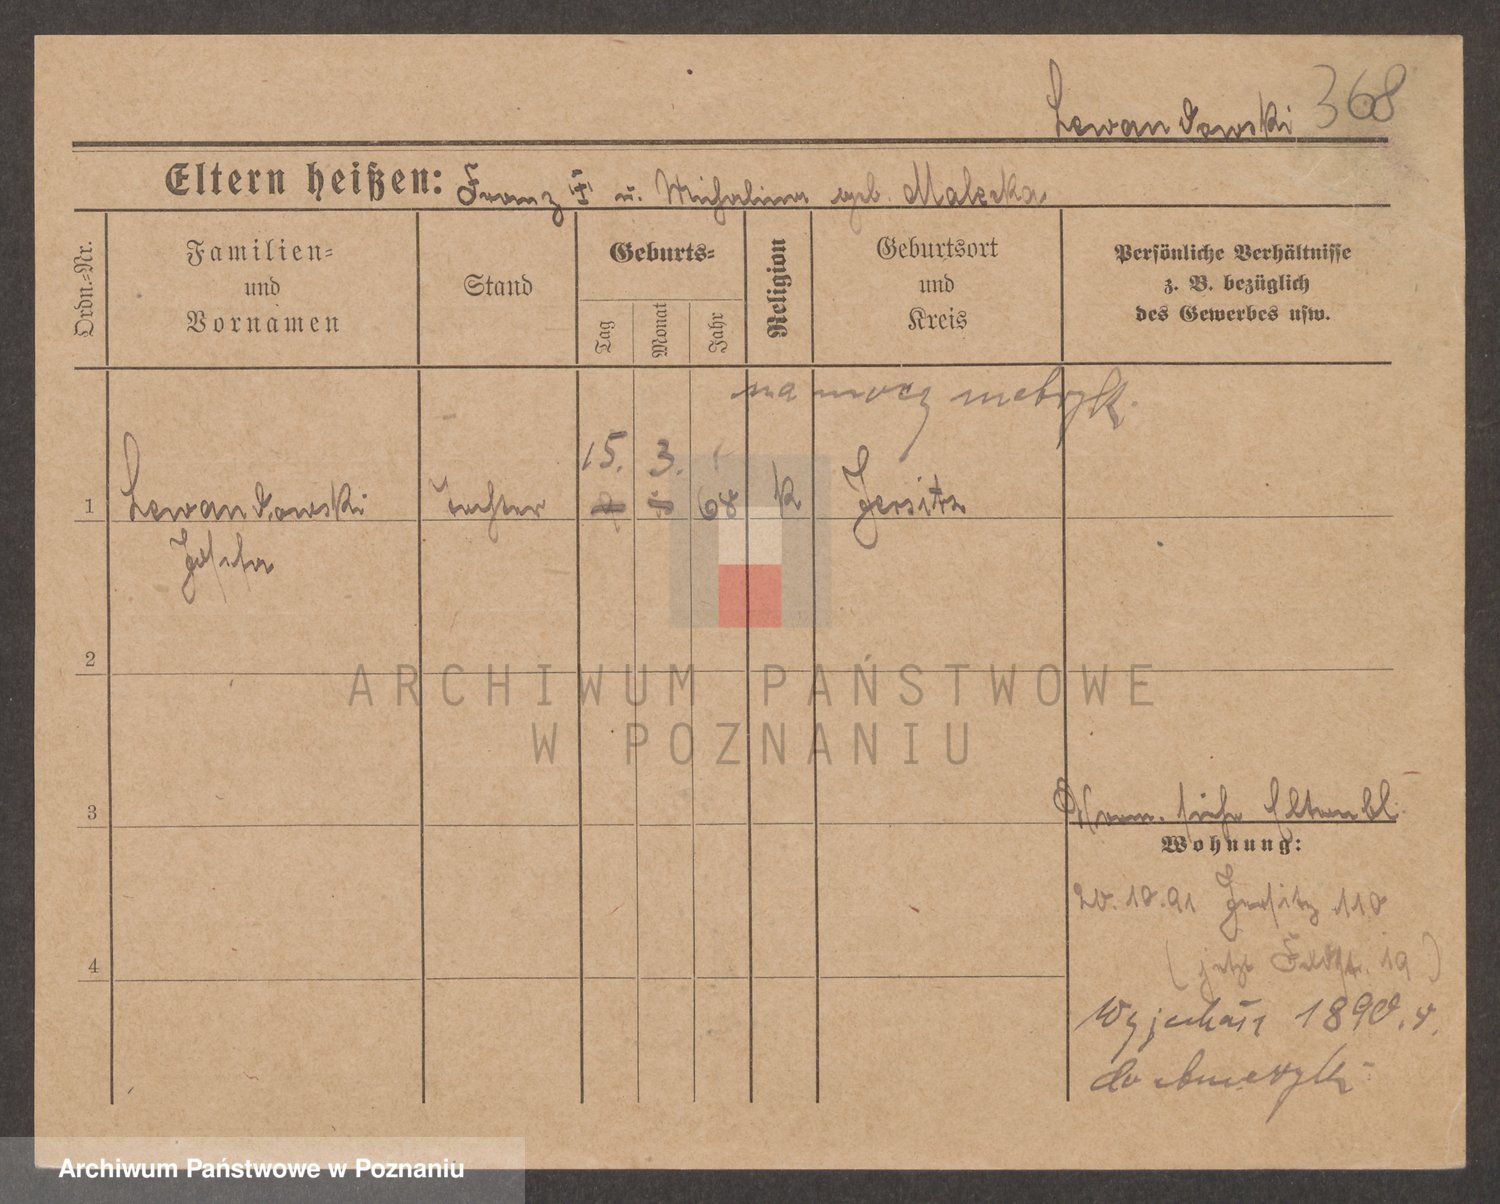 Lewandowski 368
Eltern heißen: Franz (†) u. Michalina geb. Malecka
Ordn.-Nr.
Familien-
und
Vornamen
Stand
Geburts-
Tag
Monat
Jahr
Religion
Geburtsort
und
Kreis
Persönliche Verhältnisse
z. B. bezüglich
des Gewerbes usw.
na mocy metryk.
15. 3.
1 Lewandowski Tochter 68 k Jersitz
Josefa
2
ARCHIWUM PAŃSTWOWE
W POZNANIU
3
Nom. siehe Elternbl.
Wohnung:
20.10.91 Jersitz 110
4
(jetzt Feldstr. 19)
Wyjechała 1890. r.
do Ameryki
Archiwum Państwowe w Poznaniu